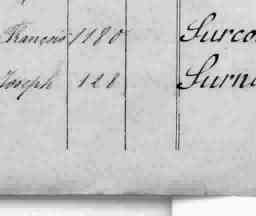 François 1180 Surco
Joseph 128 Surn